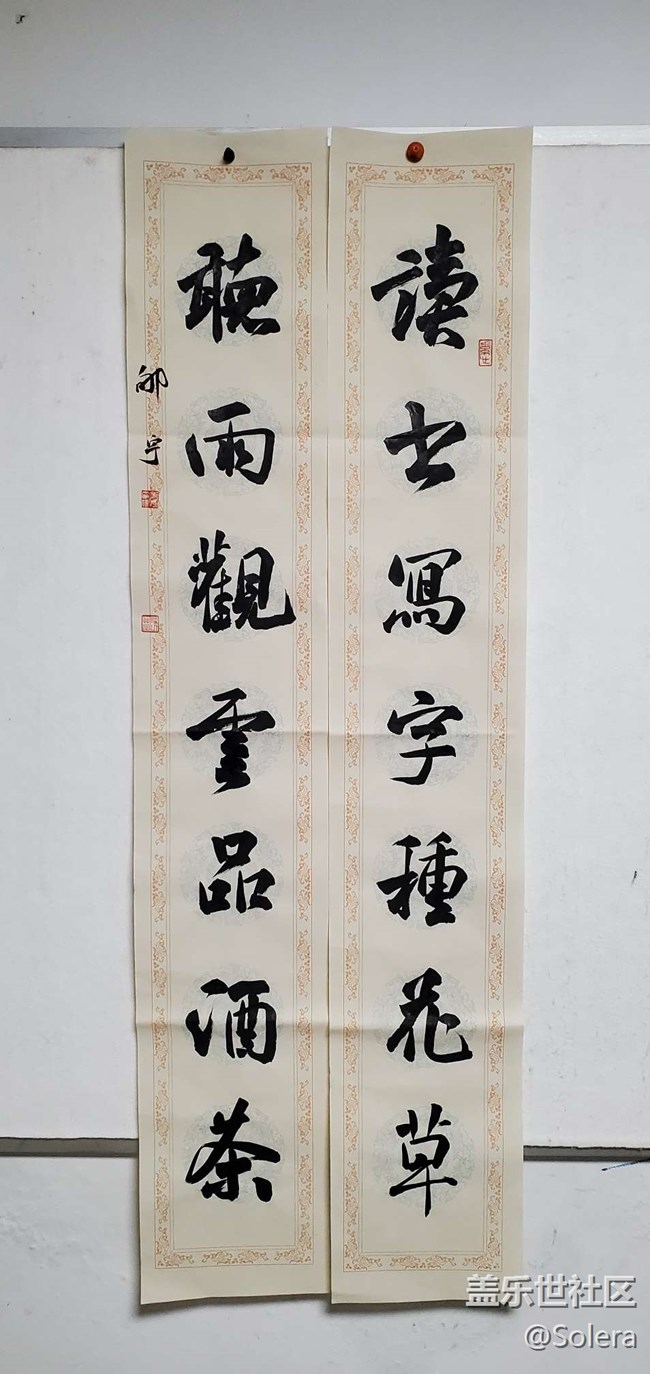 讀書寫字種花草
聽雨觀雲品酒茶
盖乐世社区
@Solera